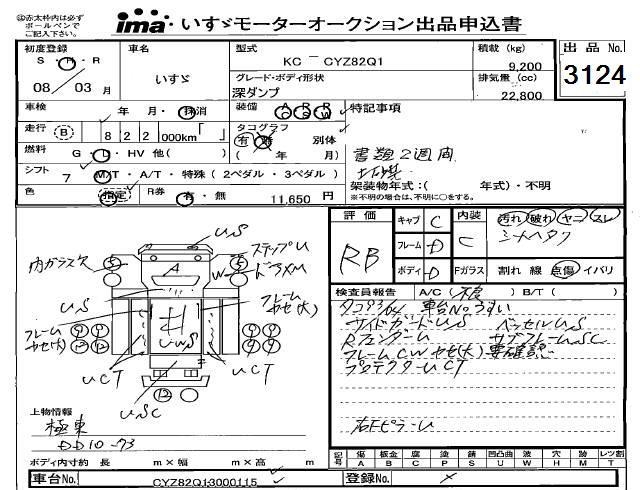 ◎赤太枠内は必ず
ボールペンで
ご記入下さい。
ima いすゞモーターオークション出品申込書
初度登録
S・H・R
08/03月
車名
いすゞ
型式
KC－CYZ82Q1
グレード・ボディ形状
深ダンプ
積載 (kg)
9,200
排気量 (cc)
22,800
出品 No.
3124
車検
年 月・抹消
装備
特記事項
走行
B
822 000km「 」
タコグラフ
有・無
別体
( 年 月)
燃料
G・D・HV 他( )
書類2週間
シフト
7
MT・A/T・特殊(2ペダル・3ペダル)
色
指定
R券
有・無
11,650 円
架装物年式:( 年式)・不明
※不明の場合は、不明に○をする。
評価
RB
キャブ C
フレーム D
ボディ D
内装
C
汚れ 破れ ヤニ スレ
Fガラス
割れ 線 点傷 イバリ
検査員報告
A/C( ) B/T( )
車台Noうすい
サイドガードU,S ベッセルU,S
RフェンダーU サブフレームSC
フレームCW ヤセ(大) 要確認
プロテクターUCT
右FピラーU
U,S
ステップU
内ガラスヌ
A
W
ドアXM
U,S
フレーム
ヤセ(大)
フレーム
ヤセ(大)
U,W,S
UCT
UCT
U,SC
上物情報
極東
DD10-73
ボディ内寸約 長 m×幅 m×高 m
記号
傷 A
板金 B
腐 C
塗 P
錆 S
凹凸曲 U
波 W
穴 H
跡 M
レツ割 T
車台No.
CYZ82Q13000115
登録No.